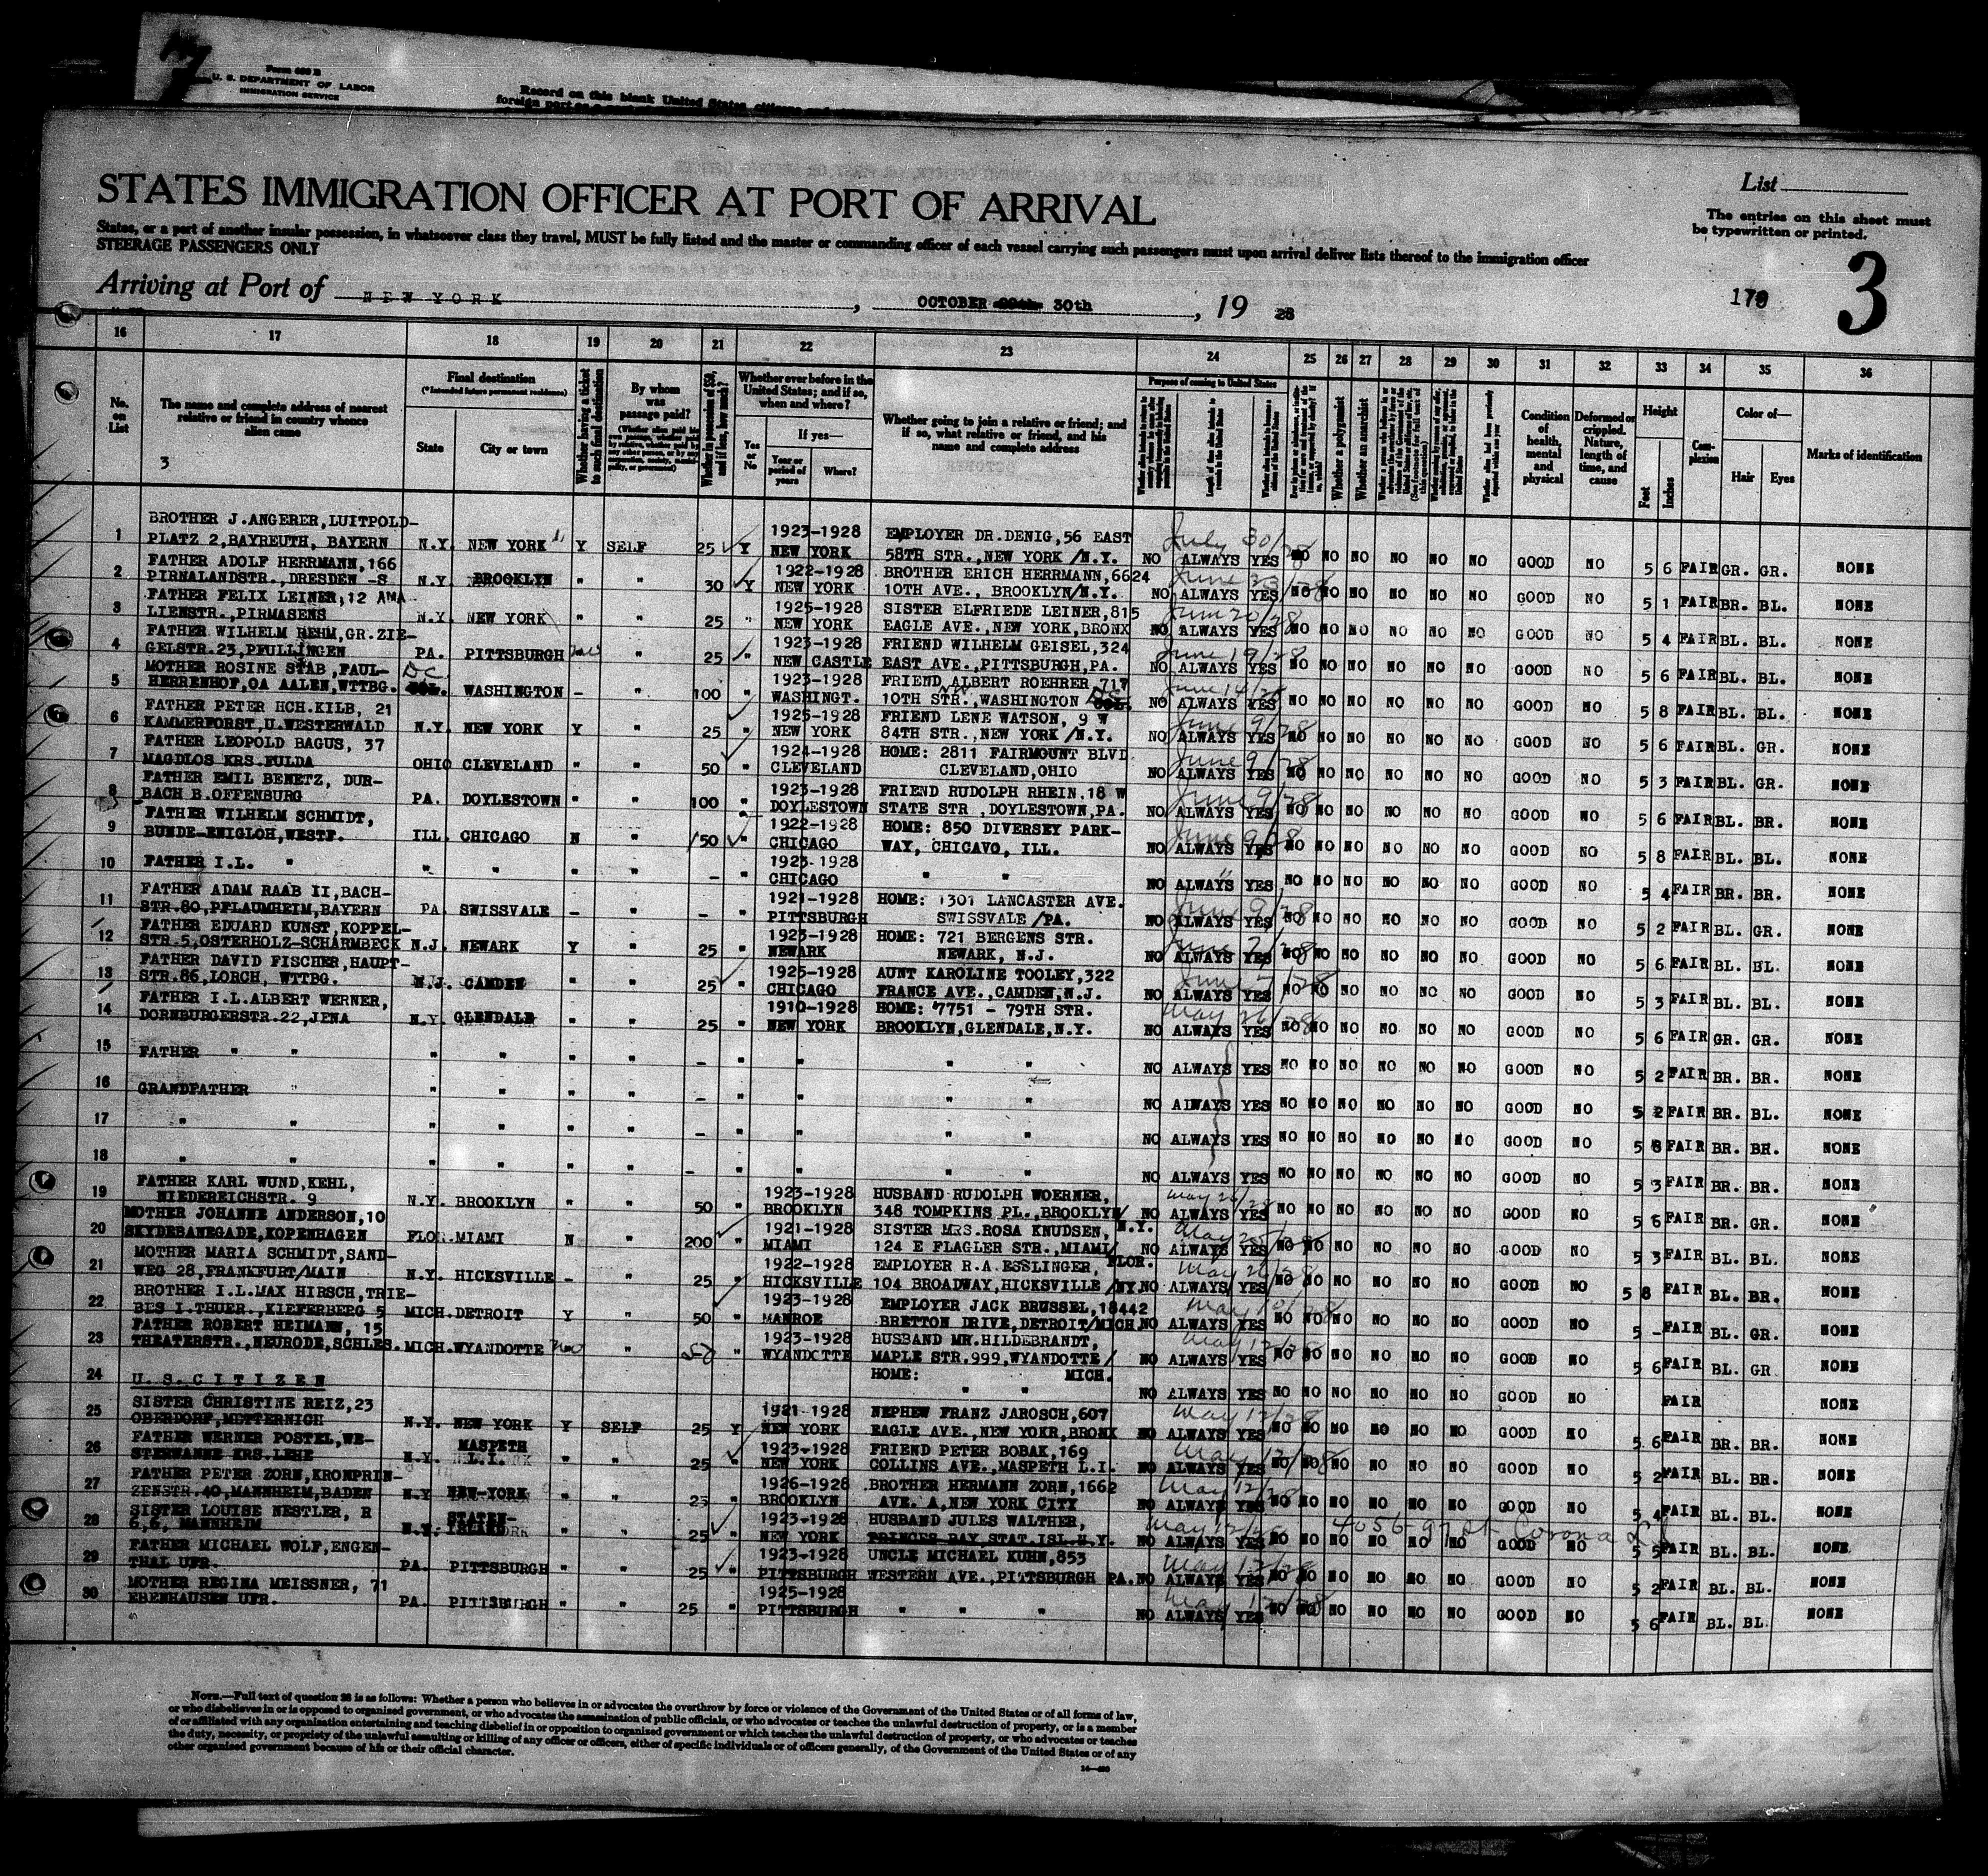 7
Form 630 B
U. S. DEPARTMENT OF LABOR
IMMIGRATION SERVICE
Record on this blank United States citizens and
foreign port
STATES IMMIGRATION OFFICER AT PORT OF ARRIVAL
States, or a part of another insular possession, in whatsoever class they travel, MUST be fully listed and the master or commanding officer of each vessel carrying such passengers must upon arrival deliver lists thereof to the immigration officer
STEERAGE PASSENGERS ONLY
List
The entries on this sheet must
be typewritten or printed.
3
Arriving at Port of NEW YORK, OCTOBER 30th, 19 28
16 17 18 19 20 21 22 23 24 25 26 27 28 29 30 31 32 33 34 35 36
No. on List
The name and complete address of nearest relative or friend in country whence alien came
3
Final destination
(*Intended future permanent residence)
State
City or town
Whether having a ticket to such final destination
By whom was passage paid?
Whether in possession of $50, and if less, how much?
Whether ever before in the United States; and if so, when and where?
Yes or No
If yes—
Year or period of years
Where?
Whether going to join a relative or friend; and if so, what relative or friend, and his name and complete address
Purpose of coming to United States
Whether a polygamist
Whether an anarchist
Condition of health, mental and physical
Deformed or crippled. Nature, length of time, and cause
Height
Feet
Inches
Complexion
Color of—
Hair
Eyes
Marks of identification
1 BROTHER J.ANGERER,LUITPOLD- 1923-1928 EMPLOYER DR.DENIG,56 EAST July 30/28
PLATZ 2,BAYREUTH, BAYERN N.Y. NEW YORK Y SELF 25 Y NEW YORK 58TH STR.,NEW YORK/N.Y. NO ALWAYS YES NO NO NO NO NO NO GOOD NO 5 6 FAIR GR. GR. NONE
2 FATHER ADOLF HERRMANN,166 1922-1928 BROTHER ERICH HERRMANN,6624 June 23/28
PIRNALANDSTR.,DRESDEN -S. N.Y. BROOKLYN " " 30 Y NEW YORK 10TH AVE., BROOKLYN/N.Y. NO ALWAYS YES NO NO NO NO NO NO GOOD NO 5 1 FAIR BR. BL. NONE
3 FATHER FELIX LEINER,12 AMA 1925-1928 SISTER ELFRIEDE LEINER,815 June 20/28
LIENSTR.,PIRMASENS N.Y. NEW YORK " " 25 " NEW YORK EAGLE AVE.,NEW YORK,BRONX NO ALWAYS YES NO NO NO NO NO NO GOOD NO 5 4 FAIR BL. BL. NONE
4 FATHER WILHELM REHM,GR.ZIE- 1923-1928 FRIEND WILHELM GEISEL,324 June 19/28
GELSTR.23,PFULLINGEN PA. PITTSBURGH " 25 " NEW CASTLE EAST AVE.,PITTSBURGH,PA. NO ALWAYS YES NO NO NO NO NO NO GOOD NO 5 6 FAIR BL. BL. NONE
5 MOTHER ROSINE STAB,FAUL- DC 1923-1928 FRIEND ALBERT ROEHRER,717 June 14/28
HERRENHOF,OA AALEN,WTTBG. COL. WASHINGTON - " 100 " WASHINGT. 10TH STR.,WASHINGTON DC NO ALWAYS YES NO NO NO NO NO NO GOOD NO 5 8 FAIR BL. BL. NONE
6 FATHER PETER HCH.KILB, 21 1925-1928 FRIEND LENE WATSON, 9 W June 9/28
KAMMERFORST,U.WESTERWALD N.Y. NEW YORK Y " 25 " NEW YORK 84TH STR.,NEW YORK/N.Y. NO ALWAYS YES NO NO NO NO NO NO GOOD NO 5 6 FAIR BL. GR. NONE
7 FATHER LEOPOLD BAGUS, 37 1924-1928 HOME: 2811 FAIRMOUNT BLVD. June 9/28
MAGDLOS KRS.FULDA OHIO CLEVELAND " " 50 " CLEVELAND CLEVELAND,OHIO NO ALWAYS YES NO NO NO NO NO NO GOOD NO 5 3 FAIR BL. GR. NONE
8 FATHER EMIL BENETZ, DUR- 1923-1928 FRIEND RUDOLPH RHEIN.18 W June 9/28
BACH B.OFFENBURG PA. DOYLESTOWN " " 100 " DOYLESTOWN STATE STR ,DOYLESTOWN,PA. NO ALWAYS YES NO NO NO NO NO NO GOOD NO 5 6 FAIR BL. BR. NONE
9 FATHER WILHELM SCHMIDT, 1922-1928 HOME: 850 DIVERSEY PARK- June 9/28
BUNDE-ENIGLOH,WESTF. ILL. CHICAGO N " 150 " CHICAGO WAY, CHICAVO, ILL. NO ALWAYS YES NO NO NO NO NO NO GOOD NO 5 8 FAIR BL. BL. NONE
10 FATHER I.L. " " " " " - " 1923-1928 " "
CHICAGO NO ALWAYS YES NO NO NO NO NO NO GOOD NO 5 4 FAIR BR. BR. NONE
11 FATHER ADAM RAAB II,BACH- 1921-1928 HOME: 1301 LANCASTER AVE. June 9/28
STR.60,PFLAUMHEIM,BAYERN PA. SWISSVALE - " - " PITTSBURGH SWISSVALE/PA. NO ALWAYS YES NO NO NO NO NO NO GOOD NO 5 2 FAIR BL. GR. NONE
12 FATHER EDUARD KUNST,KOPPEL- 1923-1928 HOME: 721 BERGENS STR. June 7/28
STR.5,OSTERHOLZ-SCHARMBECK N.J. NEWARK Y " 25 " NEWARK NEWARK, N.J. NO ALWAYS YES NO NO NO NO NO NO GOOD NO 5 6 FAIR BL. BL. NONE
13 FATHER DAVID FISCHER,HAUPT- 1925-1928 AUNT KAROLINE TOOLEY,322 June 7/28
STR.86,LORCH, WTTBG. N.J. CAMDEN " " 25 " CHICAGO FRANCE AVE.,CAMDEN,N.J. NO ALWAYS YES NO NO NO NO NO NO GOOD NO 5 3 FAIR BL. BL. NONE
14 FATHER I.L.ALBERT WERNER, 1910-1928 HOME: 7751 - 79TH STR. May 26/28
DORNBURGERSTR.22,JENA N.Y. GLENDALE " " 25 " NEW YORK BROOKLYN,GLENDALE,N.Y. NO ALWAYS YES NO NO NO NO NO NO GOOD NO 5 6 FAIR GR. GR. NONE
15 FATHER " " " " " " - " " " " NO ALWAYS YES NO NO NO NO NO NO GOOD NO 5 2 FAIR BR. BR. NONE
16 GRANDFATHER " " " " " - " " " " NO ALWAYS YES NO NO NO NO NO NO GOOD NO 5 2 FAIR BR. BL. NONE
17 " " " " " " - " " " " NO ALWAYS YES NO NO NO NO NO NO GOOD NO 5 8 FAIR BR. BR. NONE
18 " " " " " " - " " " " NO ALWAYS YES NO NO NO NO NO NO GOOD NO 5 3 FAIR BR. BR. NONE
19 FATHER KARL WUND,KEHL, 1923-1928 HUSBAND RUDOLPH WOERNER, May 26/28
NIEDEREICHSTR. 9 N.Y. BROOKLYN " " 50 " BROOKLYN 348 TOMPKINS PL.,BROOKLYN/ N.Y. NO ALWAYS YES NO NO NO NO NO NO GOOD NO 5 6 FAIR BR. GR. NONE
20 MOTHER JOHANNE ANDERSON,10 1921-1928 SISTER MRS.ROSA KNUDSEN,
SKYDEBANEGADE,KOPENHAGEN FLOR. MIAMI N " 200 " MIAMI 124 E FLAGLER STR.,MIAMI/ FLOR. NO ALWAYS YES NO NO NO NO NO NO GOOD NO 5 3 FAIR BL. BL. NONE
21 MOTHER MARIA SCHMIDT,SAND- 1922-1928 EMPLOYER R.A.ESSLINGER,
WEG 28,FRANKFURT/MAIN N.Y. HICKSVILLE - " 25 " HICKSVILLE 104 BROADWAY,HICKSVILLE/NY. NO ALWAYS YES NO NO NO NO NO NO GOOD NO 5 8 FAIR BL. BR. NONE
22 BROTHER I.L.MAX HIRSCH,TRIE- 1923-1928 EMPLOYER JACK BRUSSEL,18442
BES I.THUER.,KIEFERBERG 5 MICH. DETROIT Y " 50 " MANROE BRETTON DRIVE,DETROIT/MICH. NO ALWAYS YES NO NO NO NO NO NO GOOD NO 5 - FAIR BL. GR. NONE
23 FATHER ROBERT HEIMANN, 15 1923-1928 HUSBAND MR.HILDEBRANDT,
THEATERSTR.,NEURODE,SCHLES. MICH. WYANDOTTE no " 50 " WYANDOTTE MAPLE STR.999,WYANDOTTE/ MICH. NO ALWAYS YES NO NO NO NO NO NO GOOD NO 5 6 FAIR BL. GR NONE
24 U.S.CITIZEN HOME: " " NO ALWAYS YES NO NO NO NO NO NO GOOD NO FAIR NONE
25 SISTER CHRISTINE REIZ,23 1921-1928 NEPHEW FRANZ JAROSCH,607 May 12/28
OBERDORF,METTERNICH N.Y. NEW YORK Y SELF 25 Y NEW YORK EAGLE AVE.,NEW YOKR,BRONX NO ALWAYS YES NO NO NO NO NO NO GOOD NO 5 6 FAIR BR. BR. NONE
26 FATHER WERNER POSTEL,WE- MASPETH 1923-1928 FRIEND PETER BOBAK,169 May 12/28
STERWANNE KRS.LEHE N.Y. L.I. " " 25 " NEW YORK COLLINS AVE.,MASPETH L.I. NO ALWAYS YES NO NO NO NO NO NO GOOD NO 5 2 FAIR BL. BR. NONE
27 FATHER PETER ZORN,KRONPRIN- 1926-1928 BROTHER HERMANN ZORN,1662 May 12/28
ZENSTR.40,MANNHEIM,BADEN N.Y NEW-YORK " " 25 " BROOKLYN AVE. A,NEW YORK CITY NO ALWAYS YES NO NO NO NO NO NO GOOD NO 5 4 FAIR BL. BL. NONE
28 SISTER LOUISE NESTLER, R STATEN- 1923-1928 HUSBAND JULES WALTHER, May 12/28 4056-97 St Corona L.I.
6,6, MANNHEIM N.Y. ISLAND " " 25 " NEW YORK PRINCES BAY,STAT.ISL.N.Y. NO ALWAYS YES NO NO NO NO NO NO GOOD NO 5 5 FAIR BL. BL. NONE.
29 FATHER MICHAEL WOLF,ENGEN- 1923-1928 UNCLE MICHAEL KUHN,853 May 12/28
THAL UFR. PA. PITTSBURGH " " 25 " PITTSBURGH WESTERN AVE.,PITTSBURGH PA. NO ALWAYS YES NO NO NO NO NO NO GOOD NO 5 2 FAIR BL. BL. NONE
30 MOTHER REGINA MEISSNER, 71 1925-1928 May 12/28
EBENHAUSEN UFR. PA. PITTSBURGH " " 25 " PITTSBURGH " " " NO ALWAYS YES NO NO NO NO NO NO GOOD NO 5 6 FAIR BL. BL. NONE
NOTE.—Full text of question 28 is as follows: Whether a person who believes in or advocates the overthrow by force or violence of the Government of the United States or of all forms of law,
or who disbelieves in or is opposed to organized government, or who advocates the assassination of public officials, or who advocates or teaches the unlawful destruction of property, or is a member
of or affiliated with any organization entertaining and teaching disbelief in or opposition to organized government or which teaches the unlawful destruction of property, or who advocates or teaches
the duty, necessity, or propriety of the unlawful assaulting or killing of any officer or officers, either of specific individuals or of officers generally, of the Government of the United States or of any
other organized government because of his or their official character.